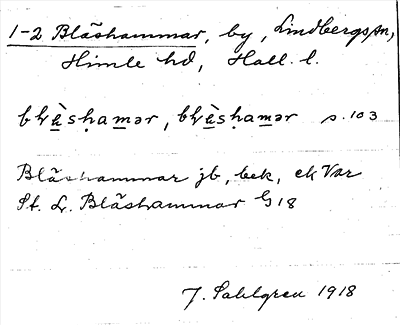 1-2 Blåshammar, by, Lindbergs sn,
Himle hd, Hall. l.
s. 103
Blåshammar jb, bek, ek Var
St. L. Blåshammar G 18
J. Sahlgren 1918